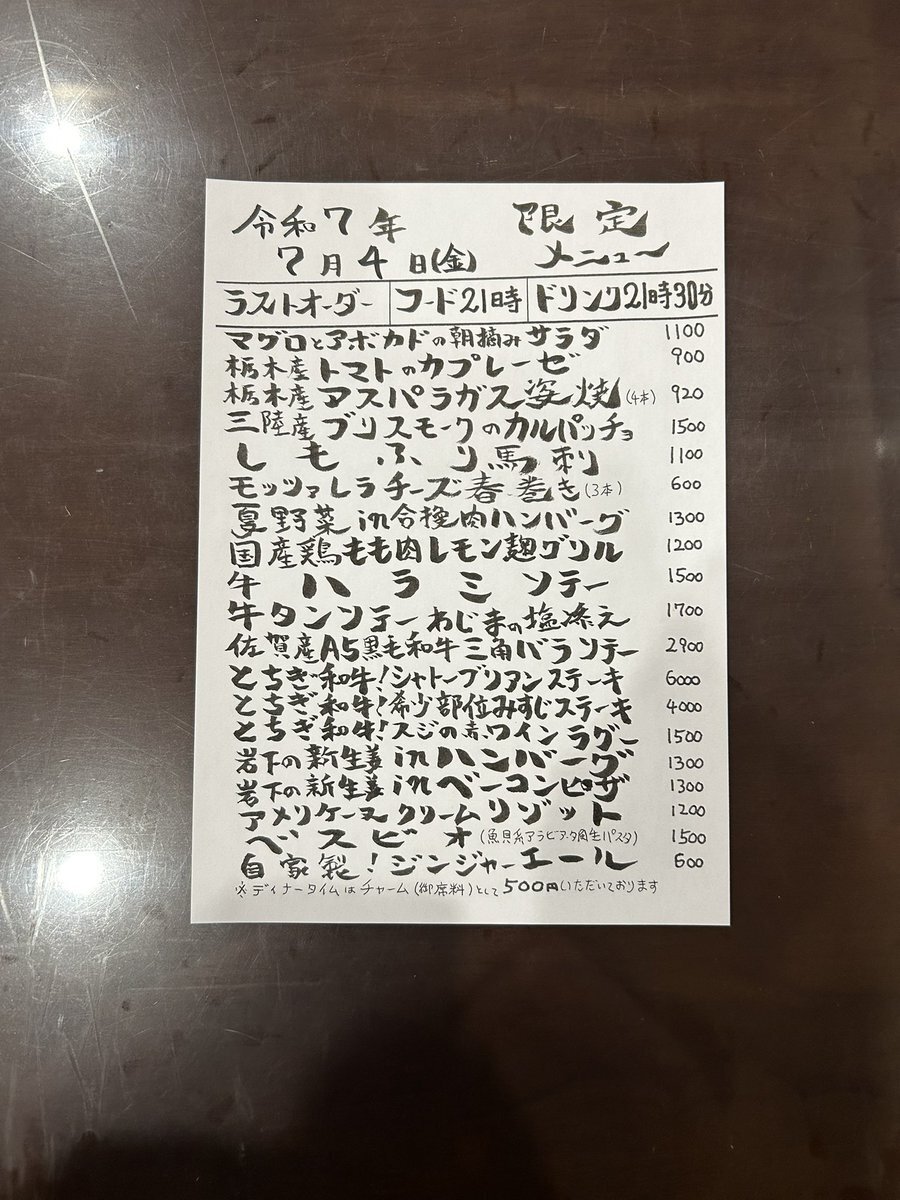 令和7年 限定
7月4日(金) メニュー
ラストオーダー フード21時 ドリンク21時30分
マグロとアボカドの朝摘みサラダ 1100
栃木産トマトのカプレーゼ 900
栃木産アスパラガス姿焼(4本) 920
三陸産ブリスモークのカルパッチョ 1500
しもふり馬刺 1100
モッツァレラチーズ春巻き(3本) 600
夏野菜in合挽肉ハンバーグ 1300
国産鶏もも肉レモン麹グリル 1200
牛ハラミソテー 1500
牛タンソテーわじまの塩添え 1700
佐賀産A5黒毛和牛三角バラソテー 2900
とちぎ和牛!シャトーブリアンステーキ 6000
とちぎ和牛!希少部位みすじステーキ 4000
とちぎ和牛!スジの赤ワインラグー 1500
岩下の新生姜inハンバーグ 1300
岩下の新生姜inベーコンピザ 1300
アメリケーヌクリームリゾット 1200
ベスビオ(魚貝系アラビアータ生パスタ) 1500
自家製!ジンジャーエール 600
※ディナータイムはチャーム(御席料)として500円いただいております